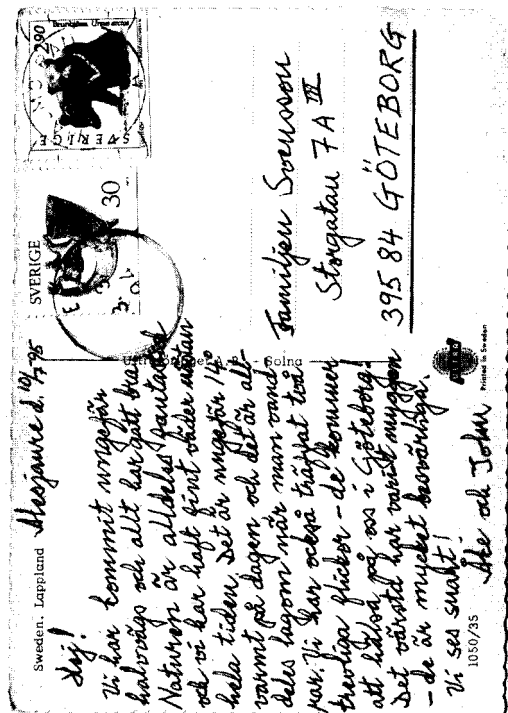 Sweden. Lappland
Alesjaure d. 10/7 95
Hej!
Vi har kommit ungefär
halvvägs och allt har gått bra.
Naturen är alldeles fantastisk
och vi har haft fint väder nästan
hela tiden. Det är ungefär 14°
varmt på dagen och det är all-
deles lagom när man vand-
rar. Vi har också träffat två
trevliga flickor - de kommer
att hälsa på oss i Göteborg!
Det värsta har varit myggen
- de är mycket besvärliga.
Vi ses snart!
Åke och John
1050/35
SVERIGE
30
Brunbjörn Ursus arctos
290
SVERIGE
Familjen Svensson
Storgatan 7A III
395 84 GÖTEBORG
Solna
Printed in Sweden